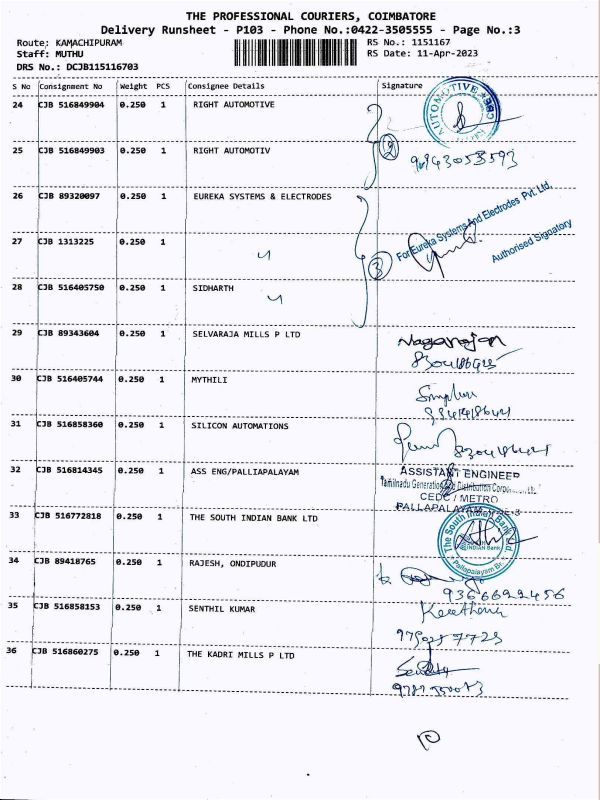 THE PROFESSIONAL COURIERS, COIMBATORE
Delivery Runsheet - P103 - Phone No.:0422-3505555 - Page No.:3
Route: KAMACHIPURAM RS No.: 1151167
Staff: MUTHU RS Date: 11-Apr-2023
DRS No.: DCJB115116703
S No Consignment No Weight PCS Consignee Details Signature
24 CJB 516849904 0.250 1 RIGHT AUTOMOTIVE
AUTOMOTIVE
25 CJB 516849903 0.250 1 RIGHT AUTOMOTIV
2
26 CJB 89320097 0.250 1 EUREKA SYSTEMS & ELECTRODES
For Eureka Systems And Electrodes Pvt. Ltd.
Authorised Signatory
27 CJB 1313225 0.250 1
3
28 CJB 516405750 0.250 1 SIDHARTH
29 CJB 89343604 0.250 1 SELVARAJA MILLS P LTD
Nagarajan
30 CJB 516405744 0.250 1 MYTHILI
31 CJB 516858360 0.250 1 SILICON AUTOMATIONS
32 CJB 516814345 0.250 1 ASS ENG/PALLIAPALAYAM
ASSISTANT ENGINEER
Tamilnadu Generation Distribution
CEDC / METRO
33 CJB 516772818 0.250 1 THE SOUTH INDIAN BANK LTD
The South Indian Bank Ltd
Pallapalayam Br.
34 CJB 89418765 0.250 1 RAJESH, ONDIPUDUR
9366622456
35 CJB 516858153 0.250 1 SENTHIL KUMAR
Keerthana
36 CJB 516860275 0.250 1 THE KADRI MILLS P LTD
10